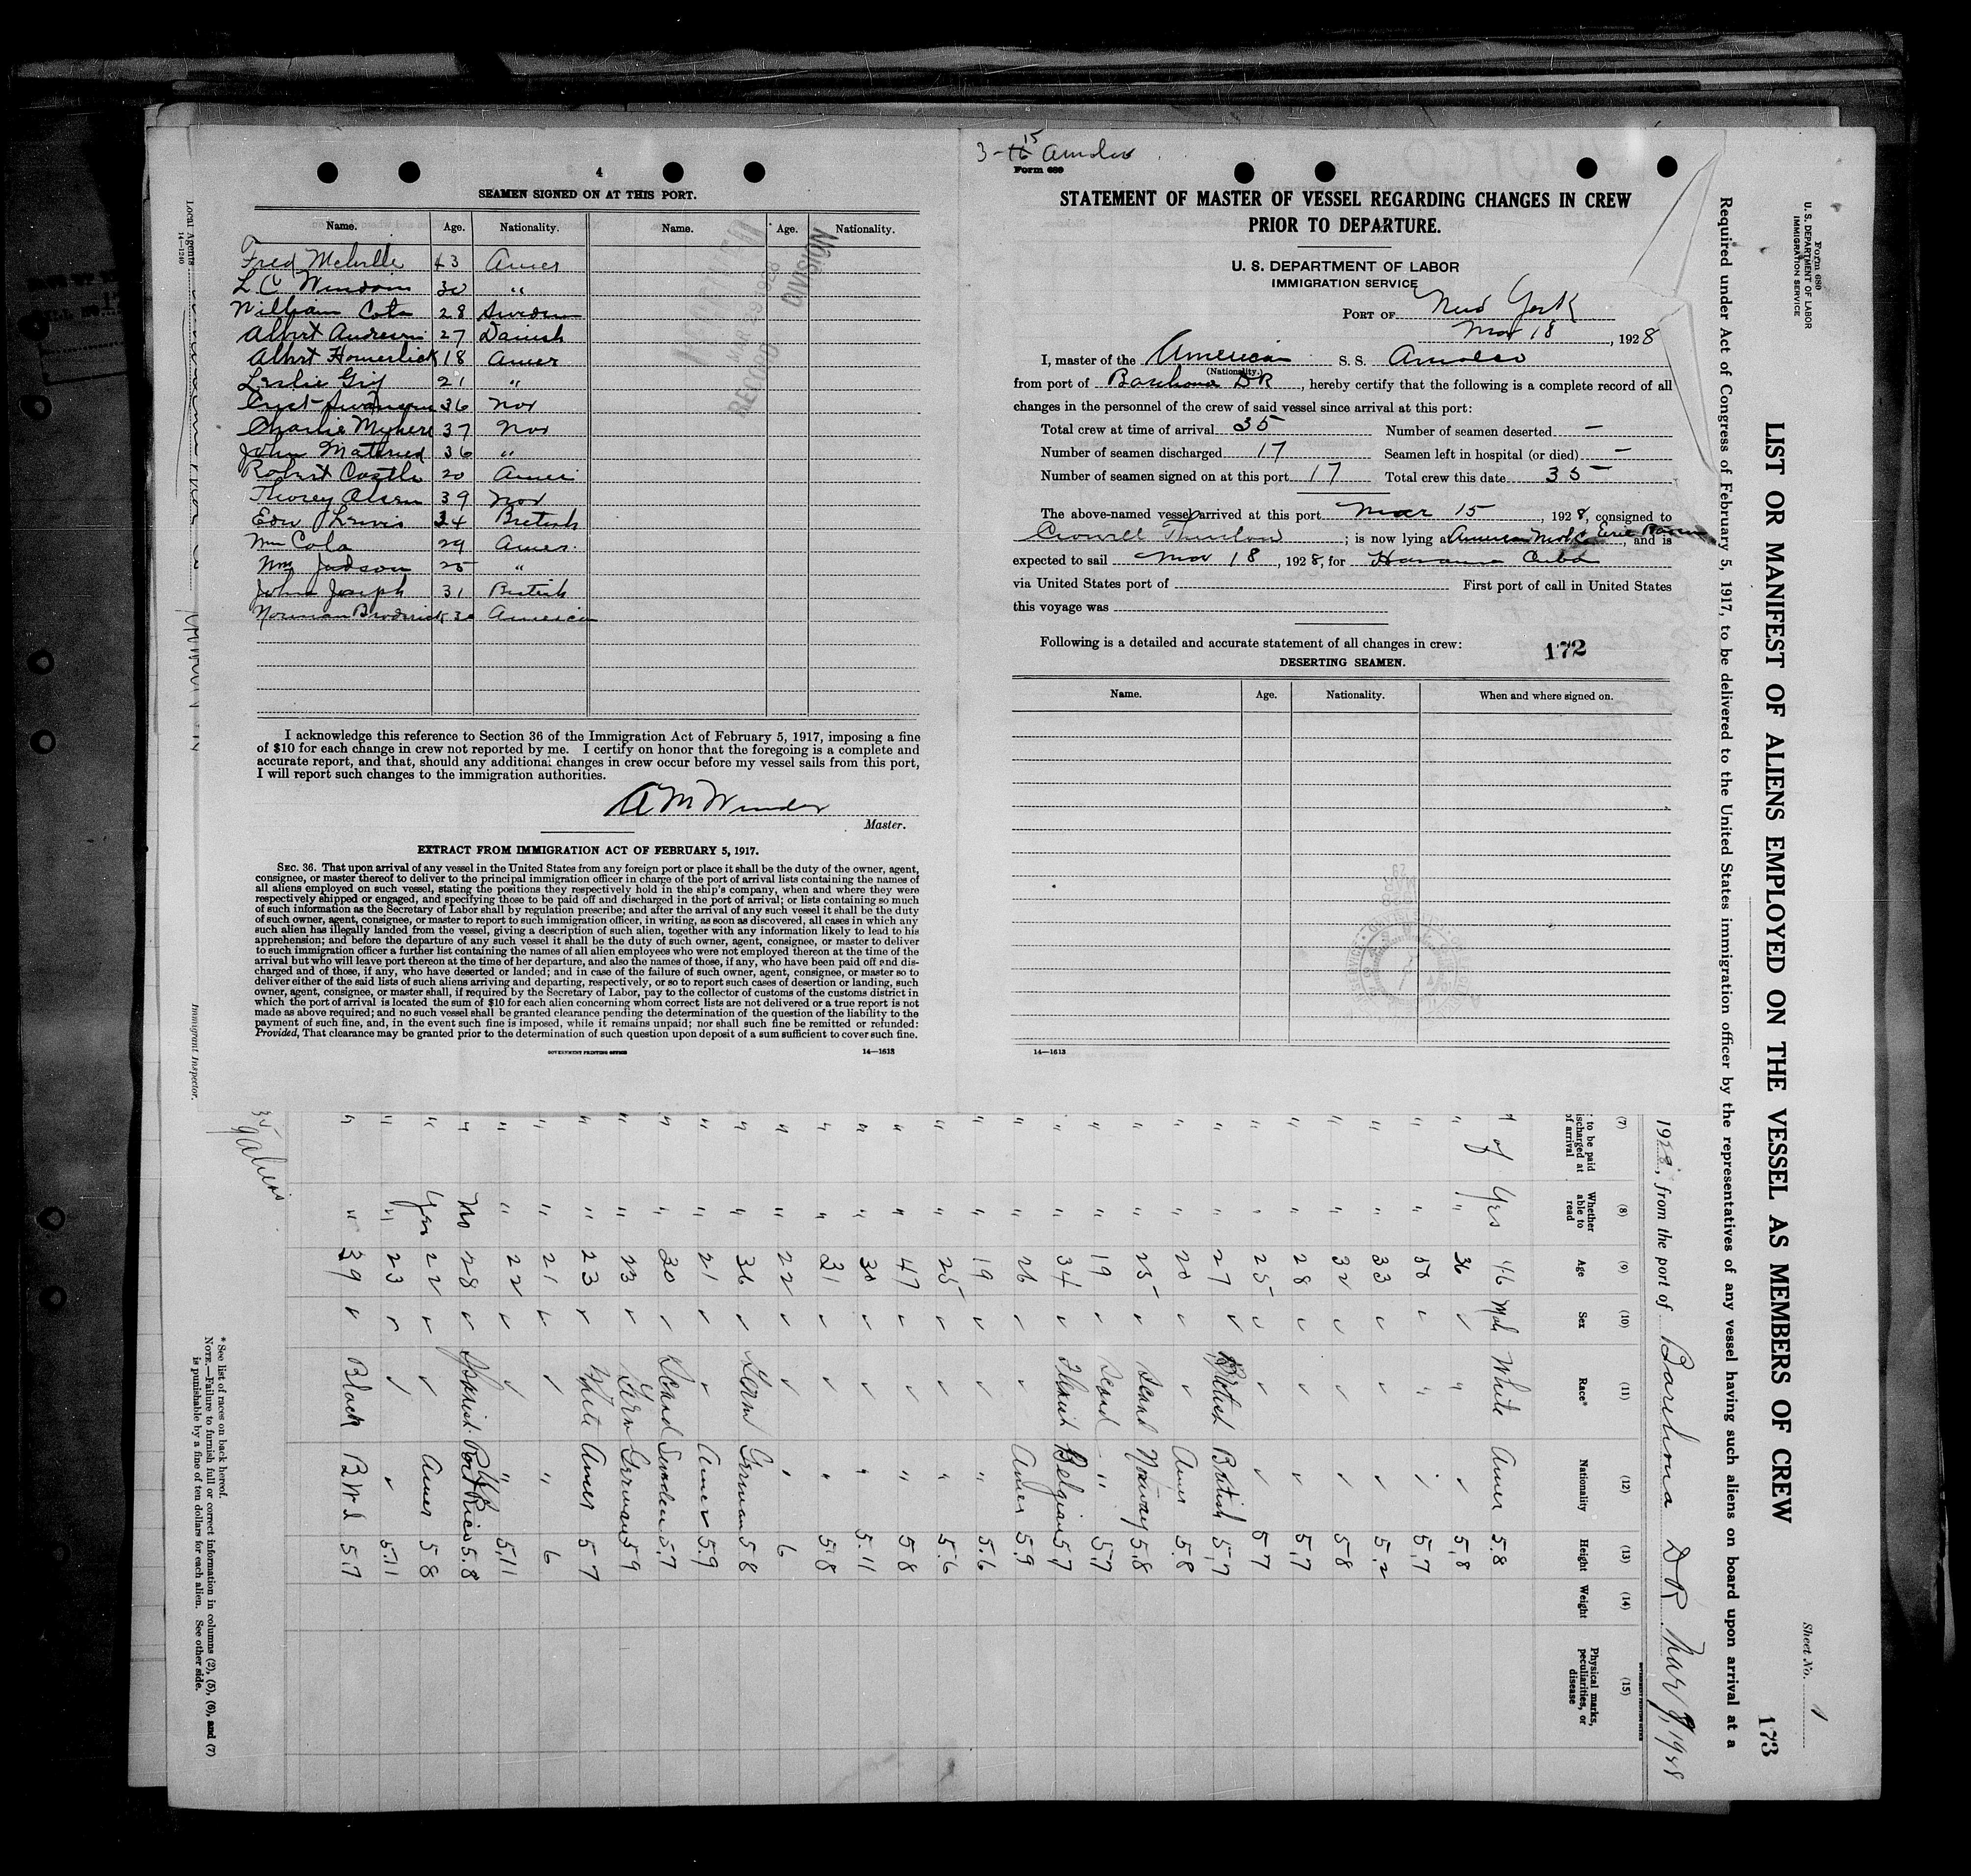 4
SEAMEN SIGNED ON AT THIS PORT.
Name. Age. Nationality. Name. Age. Nationality.
Fred Melville 43 Amer
L. C. Windom 30 "
William Cota 28 Sweden
Albert Andresen 27 Danish
Albert Homerlick 18 Amer
Leslie 21 "
36 Nor
Charlie 37 Nor
John 36 "
Robert Castle 20 Amer
Olsen 39 Nor
Edw J Lewis 34 British
Wm Cola 29 Amer.
Wm Judson 25 "
John Joseph 31 British
Norman Broderick 30 American
RECORD DIVISION
I acknowledge this reference to Section 36 of the Immigration Act of February 5, 1917, imposing a fine
of $10 for each change in crew not reported by me. I certify on honor that the foregoing is a complete and
accurate report, and that, should any additional changes in crew occur before my vessel sails from this port,
I will report such changes to the immigration authorities.
A M
Master.
EXTRACT FROM IMMIGRATION ACT OF FEBRUARY 5, 1917.
SEC. 36. That upon arrival of any vessel in the United States from any foreign port or place it shall be the duty of the owner, agent,
consignee, or master thereof to deliver to the principal immigration officer in charge of the port of arrival lists containing the names of
all aliens employed on such vessel, stating the positions they respectively hold in the ship's company, when and where they were
respectively shipped or engaged, and specifying those to be paid off and discharged in the port of arrival; or lists containing so much
of such information as the Secretary of Labor shall by regulation prescribe; and after the arrival of any such vessel it shall be the duty
of such owner, agent, consignee, or master to report to such immigration officer, in writing, as soon as discovered, all cases in which any
such alien has illegally landed from the vessel, giving a description of such alien, together with any information likely to lead to his
apprehension; and before the departure of any such vessel it shall be the duty of such owner, agent, consignee, or master to deliver
to such immigration officer a further list containing the names of all alien employees who were not employed thereon at the time of the
arrival but who will leave port thereon at the time of her departure, and also the names of those, if any, who have been paid off and dis-
charged and of those, if any, who have deserted or landed; and in case of the failure of such owner, agent, consignee, or master so to
deliver either of the said lists of such aliens arriving and departing, respectively, or so to report such cases of desertion or landing, such
owner, agent, consignee, or master shall, if required by the Secretary of Labor, pay to the collector of customs of the customs district in
which the port of arrival is located the sum of $10 for each alien concerning whom correct lists are not delivered or a true report is not
made as above required; and no such vessel shall be granted clearance pending the determination of the question of the liability to the
payment of such fine, and, in the event such fine is imposed, while it remains unpaid; nor shall such fine be remitted or refunded:
Provided, That clearance may be granted prior to the determination of such question upon deposit of a sum sufficient to cover such fine.
GOVERNMENT PRINTING OFFICE 14—1613
Local Agents
14—1240
Immigrant Inspector.
3-15
Form 689
STATEMENT OF MASTER OF VESSEL REGARDING CHANGES IN CREW
PRIOR TO DEPARTURE.
U. S. DEPARTMENT OF LABOR
IMMIGRATION SERVICE
PORT OF New York
Mar 18, 1928
I, master of the American S. S.
(Nationality.)
from port of Barahona DR, hereby certify that the following is a complete record of all
changes in the personnel of the crew of said vessel since arrival at this port:
Total crew at time of arrival 35 Number of seamen deserted —
Number of seamen discharged 17 Seamen left in hospital (or died) —
Number of seamen signed on at this port 17 Total crew this date 35
The above-named vessel arrived at this port Mar 15, 1928, consigned to
Crowell Thurlow; is now lying at American Erie Basin, and is
expected to sail Mar 18, 1928, for Havana Cuba
via United States port of First port of call in United States
this voyage was
Following is a detailed and accurate statement of all changes in crew:
172
DESERTING SEAMEN.
Name. Age. Nationality. When and where signed on.
14—1613
Form 680
U. S. DEPARTMENT OF LABOR
IMMIGRATION SERVICE
Sheet No. 1
LIST OR MANIFEST OF ALIENS EMPLOYED ON THE VESSEL AS MEMBERS OF CREW
173
Required under Act of Congress of February 5, 1917, to be delivered to the United States immigration officer by the representatives of any vessel having such aliens on board upon arrival at a
1928, from the port of Barahona DR. Mar 9, 1928
(7) (8) (9) (10) (11) (12) (13) (14) (15)
to be paid discharged at of arrival Whether able to read Age Sex Race* Nationality Height Weight Physical marks, peculiarities, or disease
Yes 46 Male White Amer 5.8
" " 36 ✓ " ✓ 5,8
" " 58 " " ✓ 5,7
" " 33 ✓ ✓ ✓ 5.2
" " 32 ✓ ✓ ✓ 5 8
" " 28 ✓ ✓ ✓ 5,7
" " 25 ✓ ✓ ✓ 5 7
" " 27 ✓ British British 5,7
" " 20 ✓ ✓ Amer 5.8
" " 25 ✓ Scand Norway 5.8
" " 19 ✓ Scand " 5.7
" " 34 ✓ Flemish Belgian 5 7
" " 26 ✓ ✓ Amer 5.9
" " 19 ✓ ✓ " 5.6
" " 25 ✓ ✓ " 5.6
" " 47 ✓ ✓ " 5 8
" " 30 ✓ ✓ " 5.11
" " 31 ✓ ✓ " 5.8
" " 22 ✓ ✓ " 6
" " 36 ✓ Germ German 5 8
" " 21 ✓ ✓ Amer 5.9
" " 30 ✓ Scand Sweden 5,7
" " 23 ✓ Germ German 5 9
" " 23 ✓ White Amer 5 7
" " 21 ✓ ✓ " 6
" " 22 ✓ ✓ " 5.11
" No 28 ✓ Spanish Port Rico 5.8
" Yes 22 ✓ ✓ Amer 5 8
" " 23 ✓ ✓ ✓ 5.11
" " 39 ✓ Black B W I 5.7
35
9 aliens
*See list of races on back hereof.
NOTE.—Failure to furnish full or correct information in columns (2), (5), (6), and (7)
is punishable by a fine of ten dollars for each alien. See other side.